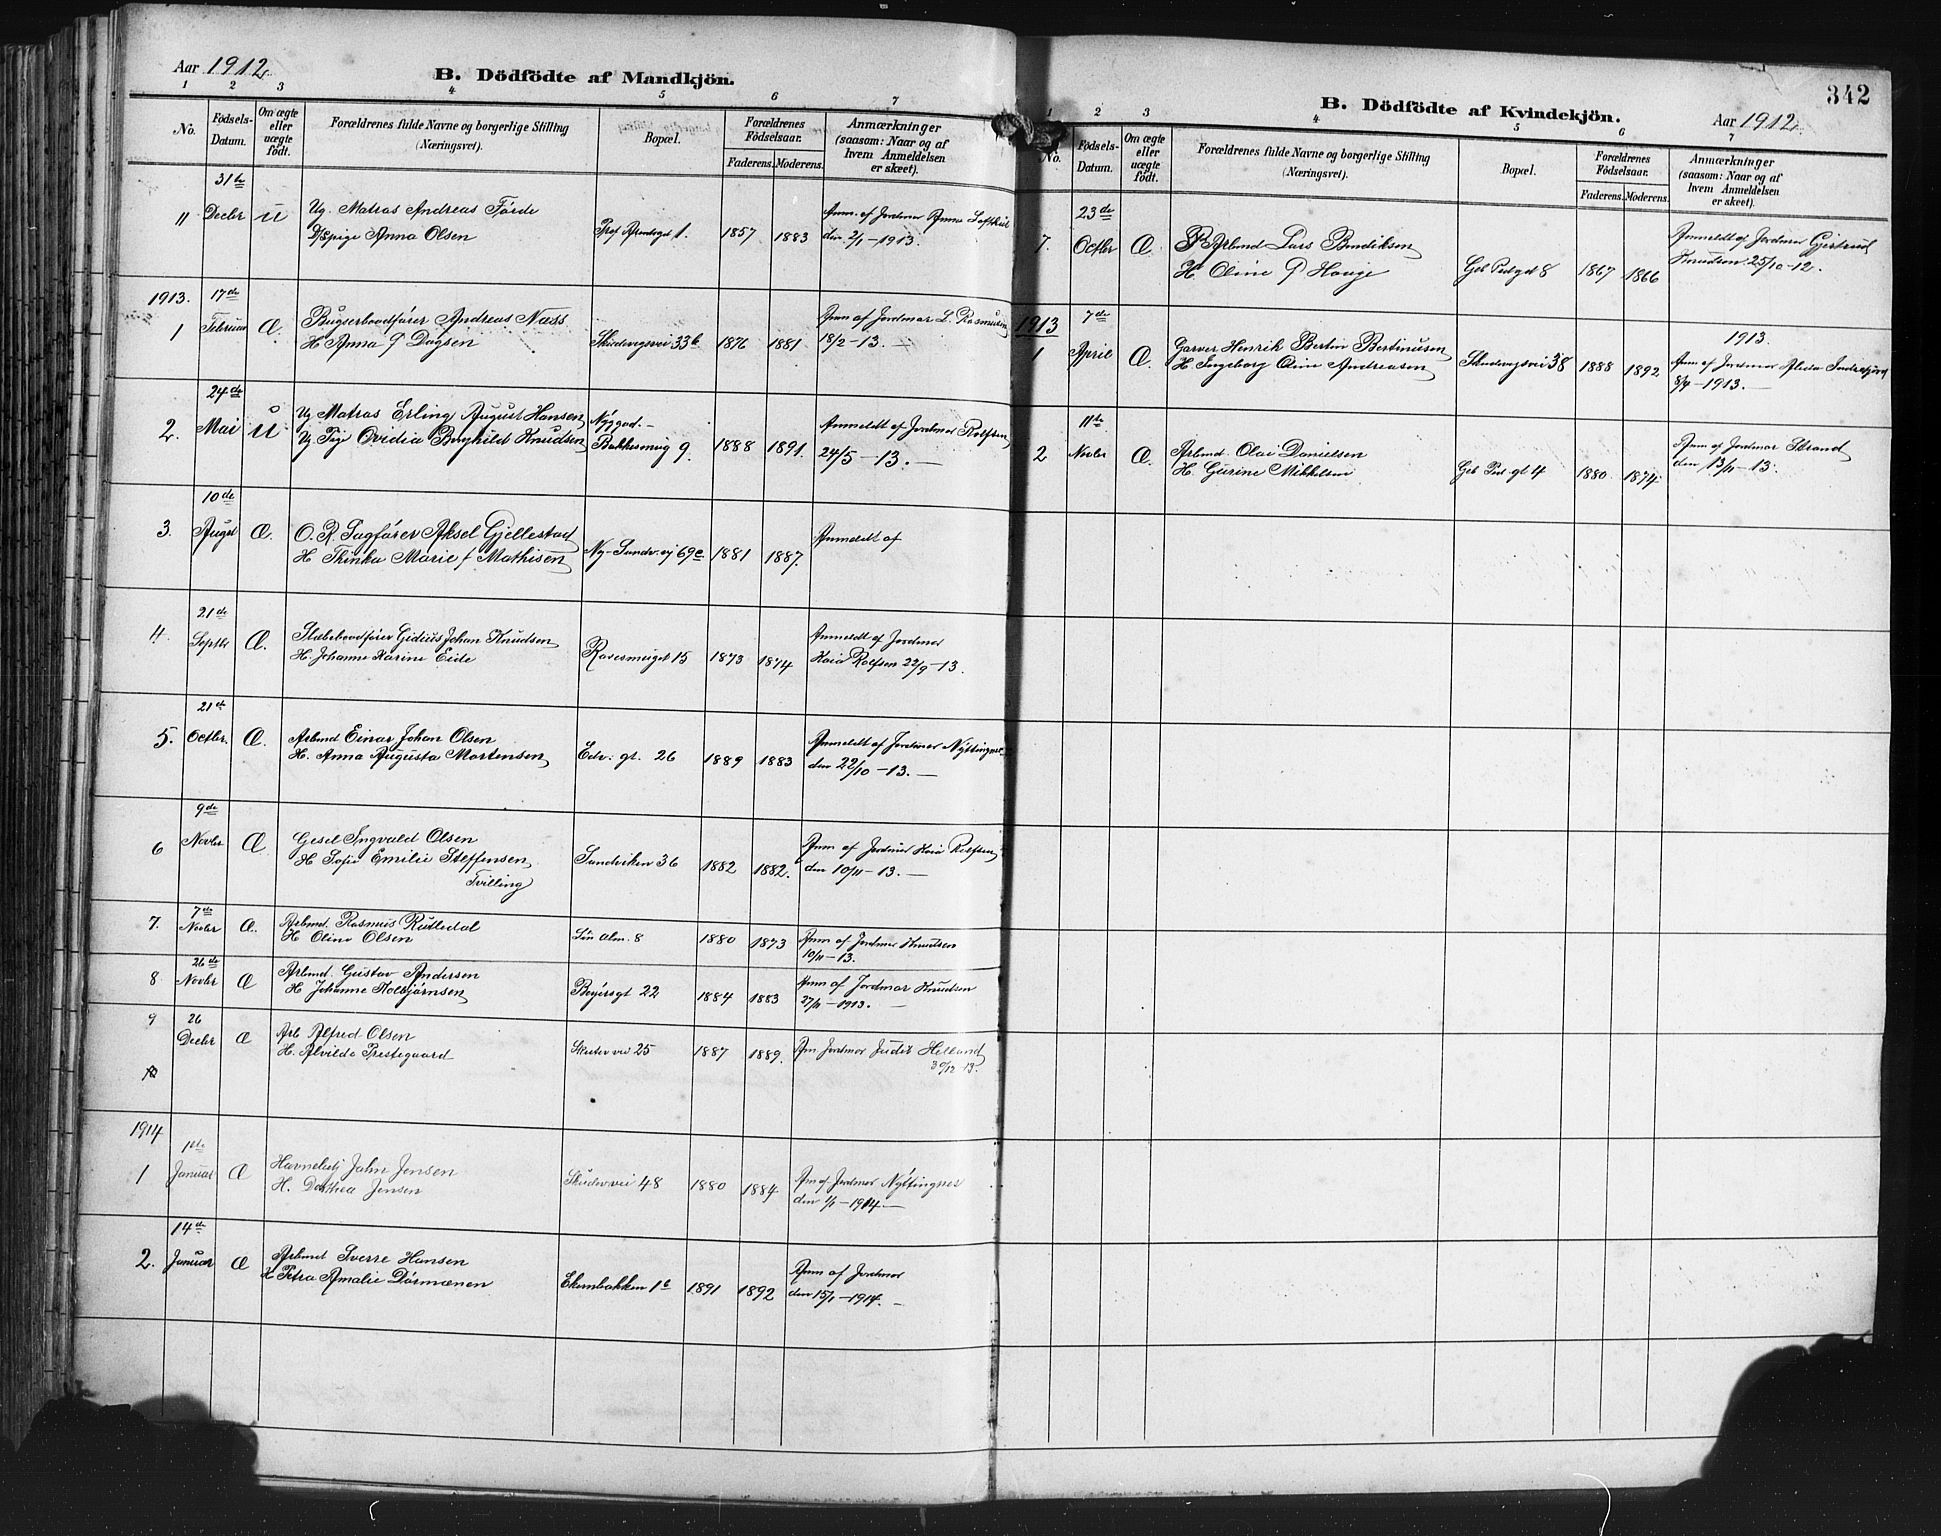 Aar 1912.
B. Dödfödte af Mandkjön.
1 2 3 4 5 6 7
No.
Födsels-Datum.
Om ægte eller uægte födt.
Forældrenes fulde Navne og borgerlige Stilling
(Næringsvei).
Bopæl.
Forældrenes Födselsaar.
Faderens. Moderens.
Anmærkninger
(saasom: Naar og af
hvem Anmeldelsen
er skeet).
31te
11 Decbr U Ug. Matros Andreas Förde
Pige Anna Olsen 1. 1857 1883
Anm. af Jordmor Anna
den 2/1-1913.
1913. 17de
1 Februar Æ. Bugserbaadförer Andreas Næss
H Anna f Dagsen Skudevigsvei 33b 1876 1881
Anm af Jordmor L. Rasmussen
18/2-13. —
24de
2. Mai U Ug Matros Erling August Hansen
Ug Pige Ovidia Borghild Knudsen
Nÿggad.-
Bakkesmug 9. 1888 1891.
Anmeldt af Jordmor Rolfsen
24/5-13. —
10de
3. August Æ. O. R. Sagförer Aksel Gjellestad
H Thinka Marie f Mathisen Ny-Sandv.ej 69c 1881 1887.
Anmeldt af
21de
4. Septbr Æ. Slæbebaadförer Gidius Johan Knudsen
H. Johanne Karine Eide 15 1873 1874
Anmeldt af Jordmor
Kaia Rolfsen 22/9-13.
21de
5. Octbr. Æ. Arbmd Einar Johan Olsen
H. Anna Augusta Mortensen Edv. gt. 26 1889 1883
Anmeldt af Jordmor Nyttingnes
den 22/10-13. —
9de
6 Novbr Æ Gesel Ingvald Olsen
H Sofie Emilie Steffensen
Tvilling
Sandviken 36 1882 1882.
Anm af Jordmor Kaia Rolfsen
den 10/11-13. —
7de
7. Novbr Æ. Arbmd. Rasmus Rutledal
H Oline Olsen alm. 8 1880 1873
Anm af Jordmor Knudsen
10/11-13.
26de
8 Novbr Æ Arbmd. Gustav Andersen
H Johanne Kolbjörnsen Beyersgt 22 1884 1883
Anm af Jordmor Knudsen
27/11-1913. —
26
9 Decbr Æ Arb Alfred Olsen
H. Alvilde Prestegaard Skudev vei 25 1887 1889.
Am Jordmor Judit Helland
30/12-13.
10
1914
1ste
1 Januar Æ Havnebetj John Jensen
H. Dorthea Jensen Skudev vei 48 1880 1884
Am af Jordmor Nyttingnes
den 1/1-1914.—
14de
2. Januar Æ Arbmd Sverre Hansen
H Petra Amalie Dörmænen Ekernbakken 1b 1891 1892
Anm af Jordmor
den 15/1-1914. —
342
B. Dödfödte af Kvindekjön.
Aar 1912.
1 2 3 4 5 6 7
No.
Födsels-Datum.
Om ægte eller uægte födt.
Forældrenes fulde Navne og borgerlige Stilling
(Næringsvei).
Bopæl.
Forældrenes Födselsaar.
Faderens. Moderens.
Anmærkninger
(saasom: Naar og af
hvem Anmeldelsen
er skeet).
23de
7. Octbr Æ Arbmd Lars Bendiksen
H. Oline f Hauge 8 1867 1866
Anmeldt af Jordmor Gjertrud
Knudsen 25/10-12.
1913
7de
1 April Æ Garver Henrik Berton Bertinusen
H. Ingeborg Oline Andreasen Skudevigsvei 38 1888 1892
1913.
Anm af Jordmor Alida
8/4-1913. —
11te
2 Novbr Æ. Arbmd. Olai Danielsen
H. Gurine Mikkelsen 4 1880 1874
Anm af Jordmor Strand
den 13/11-13.